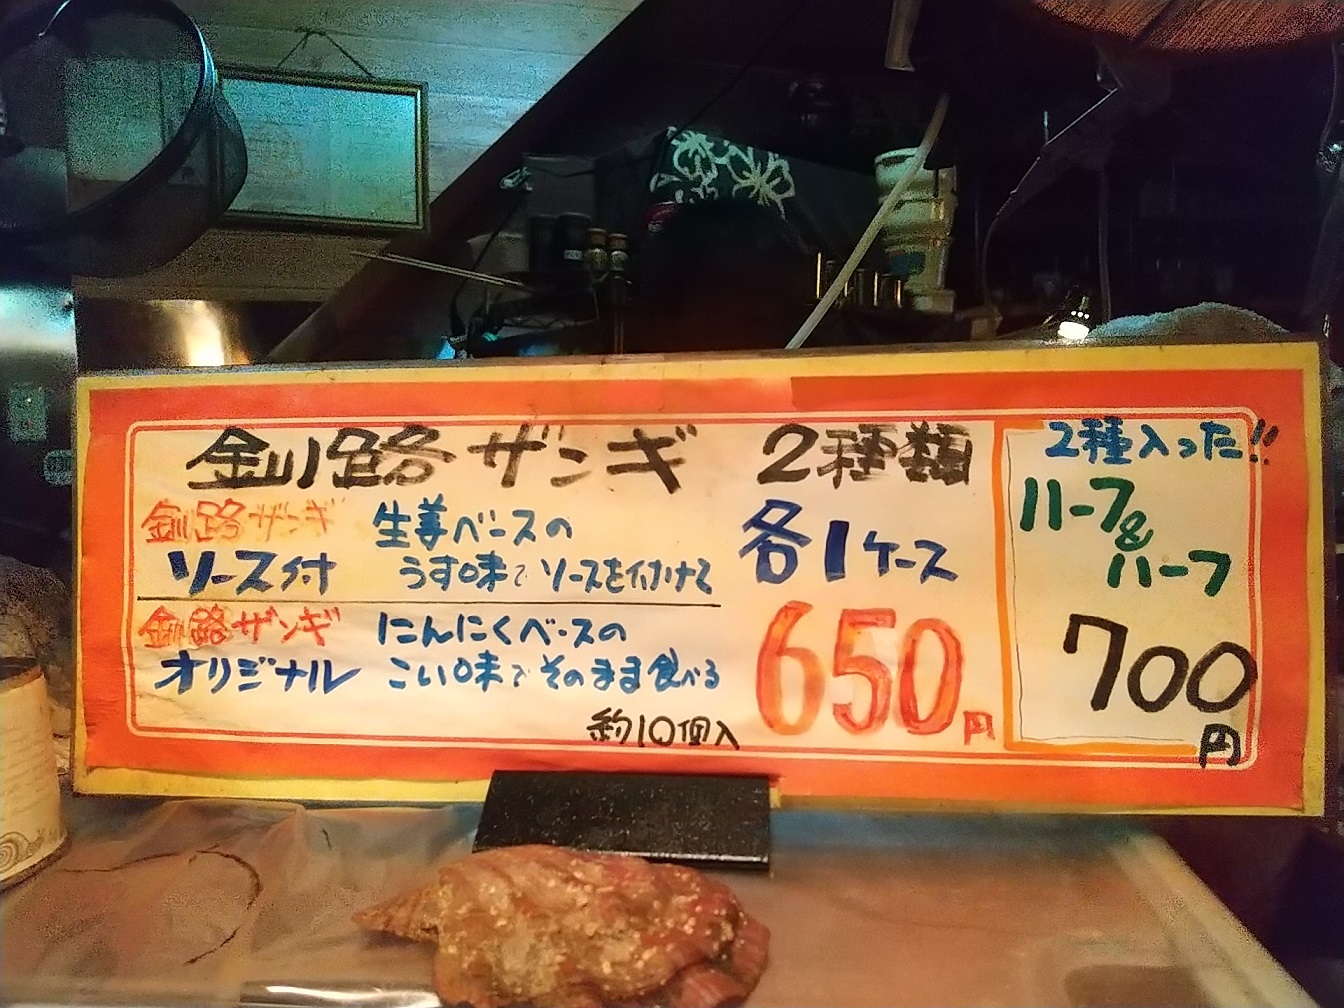 釧路ザンギ 2種類
釧路ザンギ
ソース付
生姜ベースの
うす味でソースを付けて
釧路ザンギ
オリジナル
にんにくベースの
こい味でそのまま食べる
約10個入
各1ケース
650円
2種入った!!
ハーフ&
ハーフ
700
円